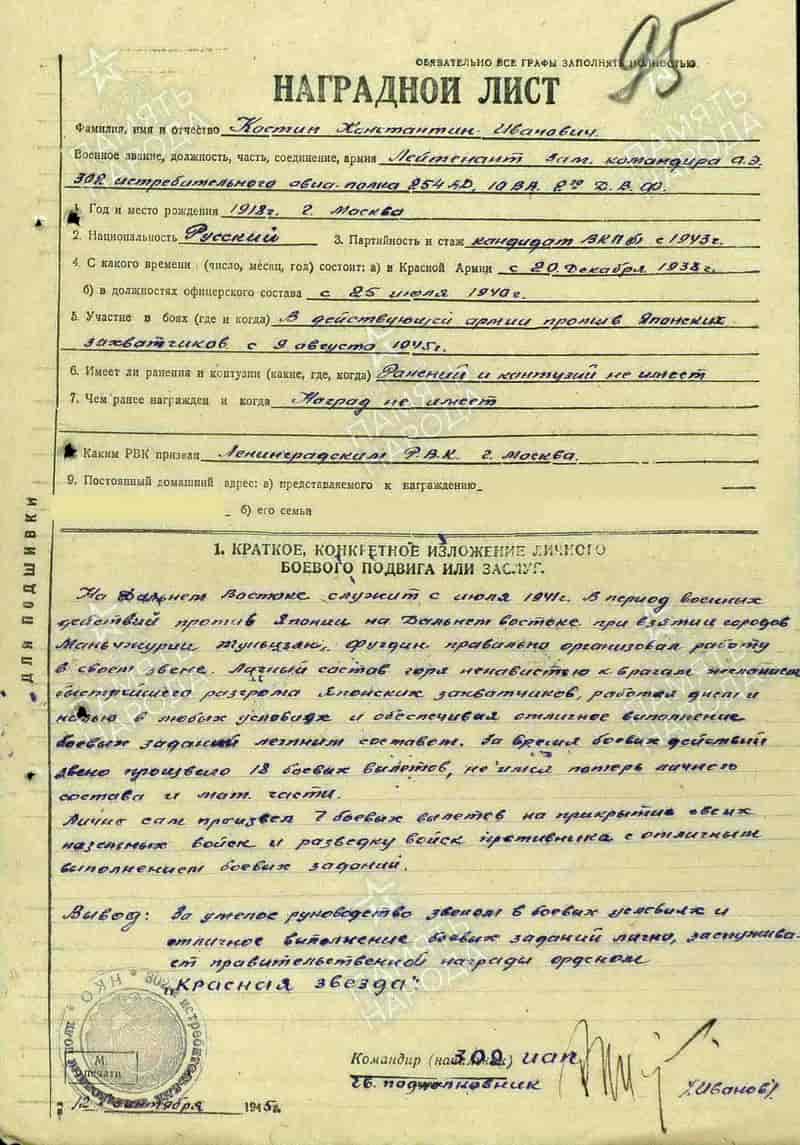 95
ОБЯЗАТЕЛЬНО ВСЕ ГРАФЫ ЗАПОЛНЯТЬ ПОЛНОСТЬЮ
НАГРАДНОЙ ЛИСТ
Фамилия, имя и отчество Костин Константин Иванович.
Военное звание, должность, часть, соединение, армия Лейтенант зам. командира а.э.
302 истребительного авиа-полка 254 АД, 10 ВА, 2го Д.В.Ф.
1. Год и место рождения 1918г. г. Москва
2. Национальность Русский 3. Партийность и стаж кандидат ВКПб с 1943г.
4. С какого времени (число, месяц, год) состоит: а) в Красной Армии с 20 Декабря 1938г.
б) в должностях офицерского состава с 25 июля 1940г.
5. Участие в боях (где и когда) В действующей армии против Японских
захватчиков с 9 августа 1945г.
6. Имеет ли ранения и контузии (какие, где, когда) Ранений и контузий не имеет
7. Чем ранее награжден и когда Наград не имеет
8. Каким РВК призван Ленинградским Р.В.К. г. Москва.
9. Постоянный домашний адрес: а) представляемого к награждению
б) его семьи
ДЛЯ ПОДШИВКИ
1. КРАТКОЕ, КОНКРЕТНОЕ ИЗЛОЖЕНИЕ ЛИЧНОГО
БОЕВОГО ПОДВИГА ИЛИ ЗАСЛУГ.
На Дальнем Востоке служит с июля 1941г. В период военных
действий против Японии на Дальнем востоке при взятии городов
Маньчжурии, Фугдин правильно организовал работу
в своем звене. Личный состав горя ненавистью к врагам желанием
быстрейшего разгрома Японских захватчиков, работал днем и
ночью в любых условиях и обеспечивал отличное выполнение
боевых заданий летным составом. За время боевых действий
звено произвело 18 боевых вылетов, не имея потерь личного
состава и мат. части.
Лично сам произвел 7 боевых вылетов на прикрытие своих
наземных войск и разведку войск противника с отличным
выполнением боевых заданий.
Вывод: За умелое руководство звеном в боевых условиях и
отличное выполнение боевых заданий лично, заслужива-
ет правительственной награды орденом
"Красная звезда".
М.
печати
Командир (начальник) 302 иап
гв. подполковник
/Иванов/
12 сентября 1945г.
ПАМЯТЬ НАРОДА